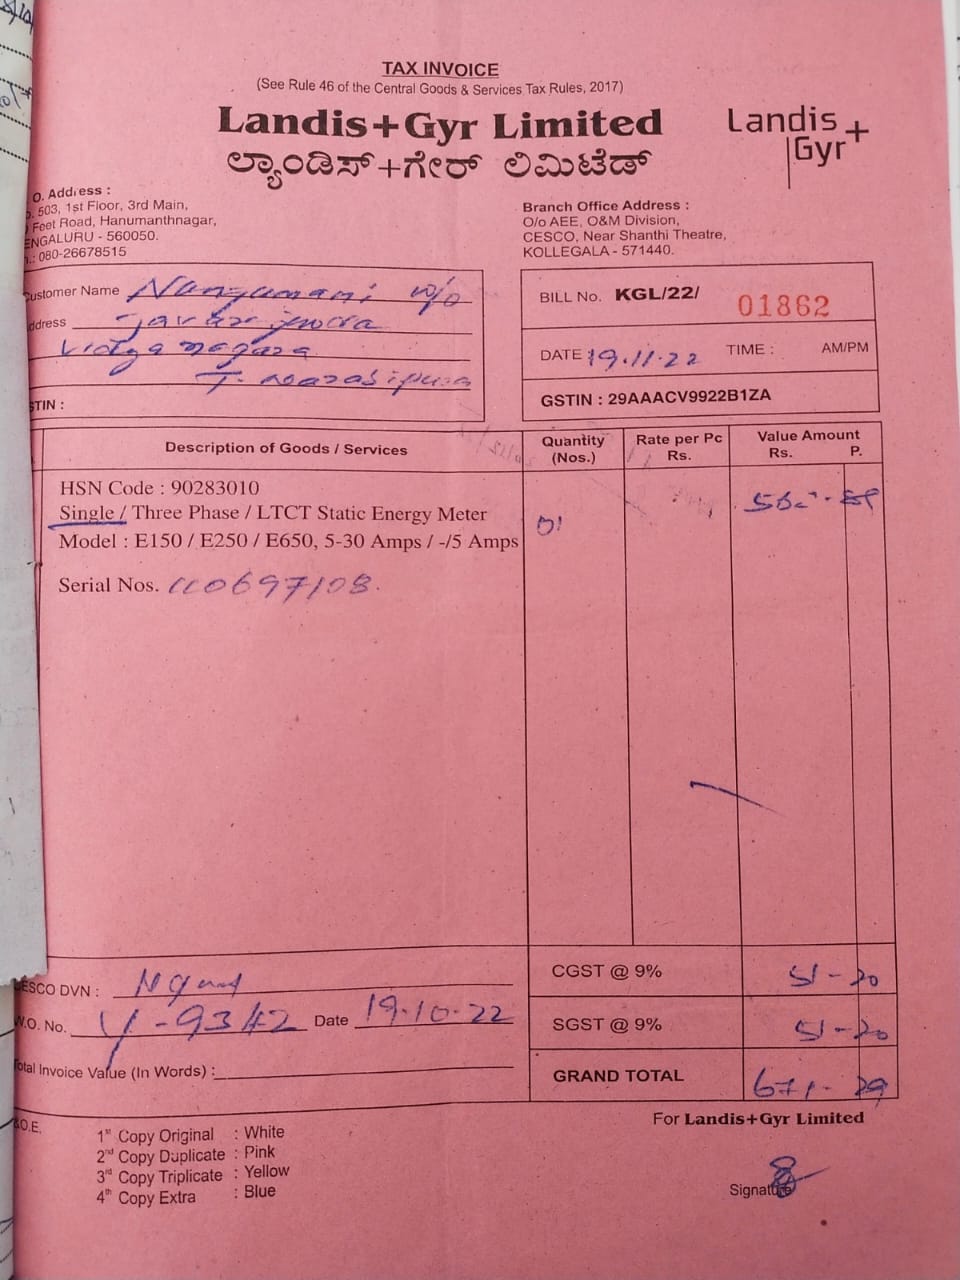 TAX INVOICE
(See Rule 46 of the Central Goods & Services Tax Rules, 2017)
Landis+Gyr Limited
ಲ್ಯಾಂಡಿಸ್+ಗೇರ್ ಲಿಮಿಟೆಡ್
Landis+
Gyr
O. Address :
503, 1st Floor, 3rd Main,
Feet Road, Hanumanthnagar,
ENGALURU - 560050.
.: 080-26678515
Branch Office Address :
O/o AEE, O&M Division,
CESCO, Near Shanthi Theatre,
KOLLEGALA - 571440.
ustomer Name Nangamani w/o
ddress
Vidyanagara
T. Narasipura
STIN :
BILL No. KGL/22/ 01862
DATE : 19.11.22 TIME : AM/PM
GSTIN : 29AAACV9922B1ZA
Description of Goods / Services
Quantity (Nos.)
Rate per Pc Rs.
Value Amount Rs. P.
HSN Code : 90283010
Single / Three Phase / LTCT Static Energy Meter
01
Model : E150 / E250 / E650, 5-30 Amps / -/5 Amps
Serial Nos.
ESCO DVN :
CGST @ 9% 51-20
W.O. No. Date 19.10.22
SGST @ 9% 51-20
otal Invoice Value (In Words) :
GRAND TOTAL 671-29
&O.E.
For Landis+Gyr Limited
1st Copy Original : White
2nd Copy Duplicate : Pink
3rd Copy Triplicate : Yellow
4th Copy Extra : Blue
Signature